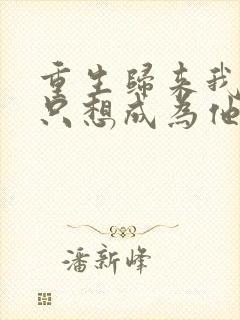 重生歸来我
只想成為他
潘新峰